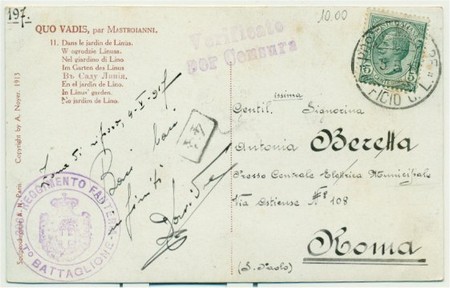 197.
10.00
QUO VADIS, par MASTROIANNI.
11. Dans le jardin de Linus.
W ogrodzie Linusa.
Nel giardino di Lino
Im Garten des Linus
Въ Саду Линія,
En el jardin de Lino
In Linus' garden.
No jardim de Lino.
Copyright by A. Noyer. 1913
Verificato
per Censura
5 5
Zona di
4-V-917
Baci cari
infiniti
44
REGGIMENTO FANTERIA
BATTAGLIONE
issima
Gentil. Signorina
Antonia Beretta
Presso Centrale Elettrica Municipale
Via Ostiense N° 108
Roma
(S. Paolo)